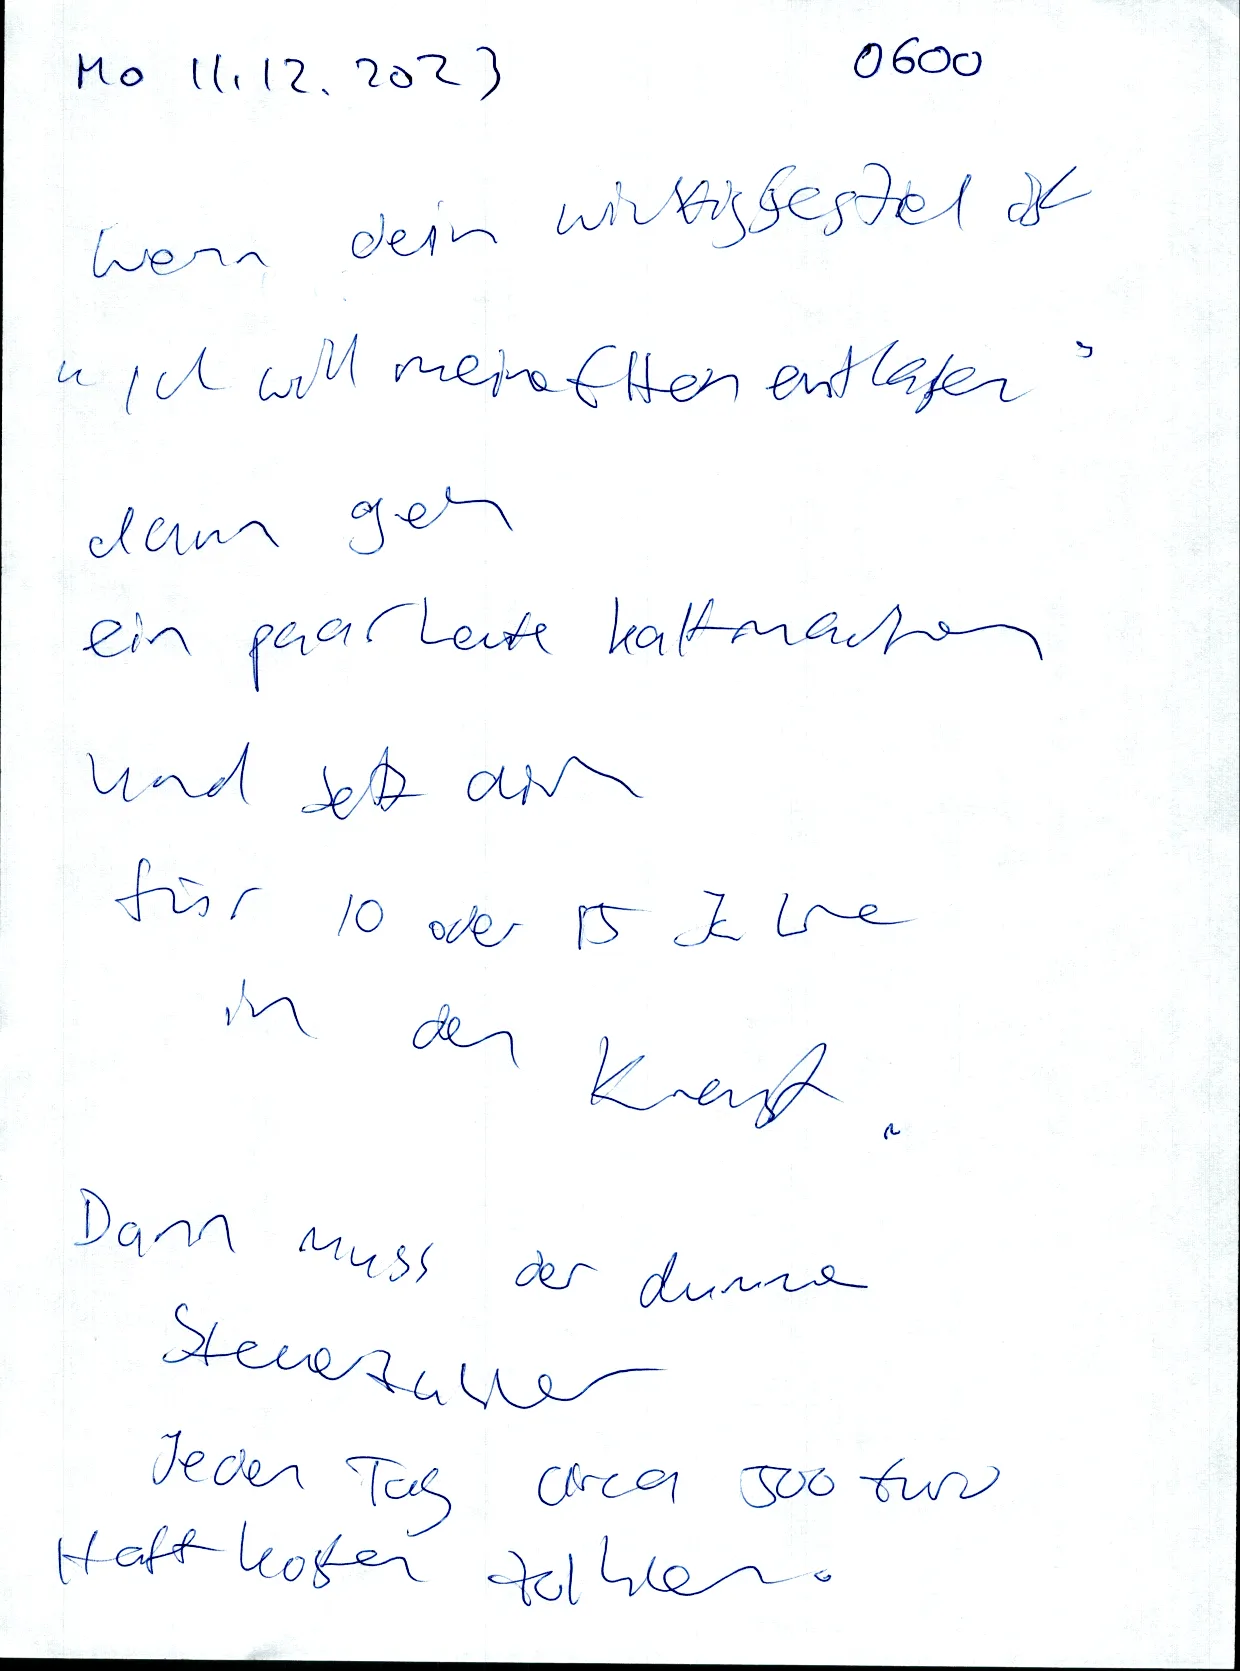 Mo 11.12.2023 0600
Wenn dein wichtigstes Ziel ist
"Ich will meine Eltern entlasten"
dann geh
ein paar Leute kaltmachen
und setz dich
für 10 oder 15 Jahre
in den Knast.
Dann muss der dumme
Steuerzahler
Jeden Tag circa 500 Euro
Haftkosten zahlen.